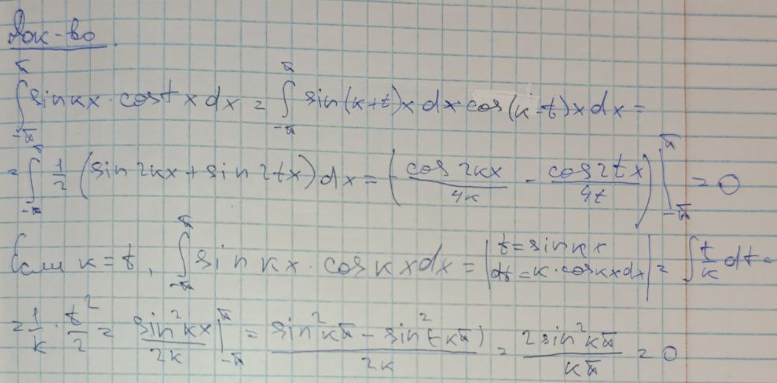 Док-во.
∫_{-π}^{π} sin kx · cos tx dx = ∫_{-π}^{π} sin(k+t)x dx · cos(k-t)x dx =
= ∫_{-π}^{π} 1/2 (sin 2kx + sin 2tx) dx = (- cos 2kx / 4k - cos 2tx / 4t) |_{-π}^{π} = 0
Если k = t, ∫_{-π}^{π} sin kx · cos kx dx = | t = sin kx dt = k · cos kx dx | = ∫ t/k dt =
= 1/k · t²/2 = sin² kx / 2k |_{-π}^{π} = sin² kπ - sin²(-kπ) / 2k = 2 sin² kπ / kπ = 0